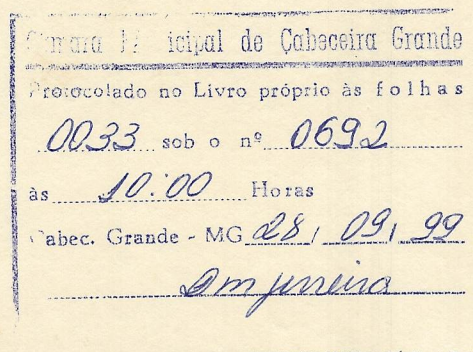 Câmara Municipal de Cabeceira Grande
Protocolado no Livro próprio às folhas
0033 sob o nº 0692
às 10:00 Horas
Cabec. Grande - MG 28 / 09 / 99